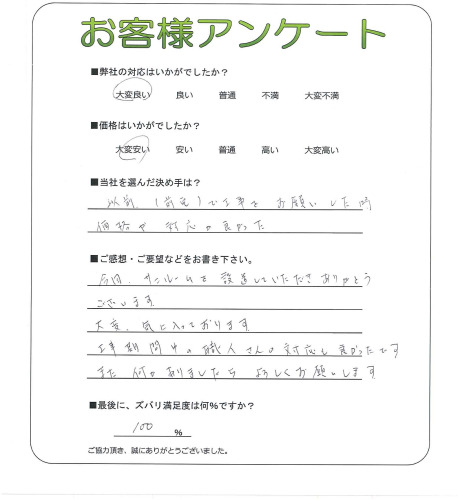 お客様アンケート
■弊社の対応はいかがでしたか？
大変良い 良い 普通 不満 大変不満
■価格はいかがでしたか？
大変安い 安い 普通 高い 大変高い
■当社を選んだ決め手は？
以前、(前宅)で工事を お願いした時
価格や 対応が良かった
■ご感想・ご要望などをお書き下さい。
今回、サンルームを設置していただきありがとう
ございます
大変、気に入っております
工事期間中の職人さんの対応も良かったです
また 何かありましたら よろしくお願いします
■最後に、ズバリ満足度は何%ですか？
100 %
ご協力頂き、誠にありがとうございました。